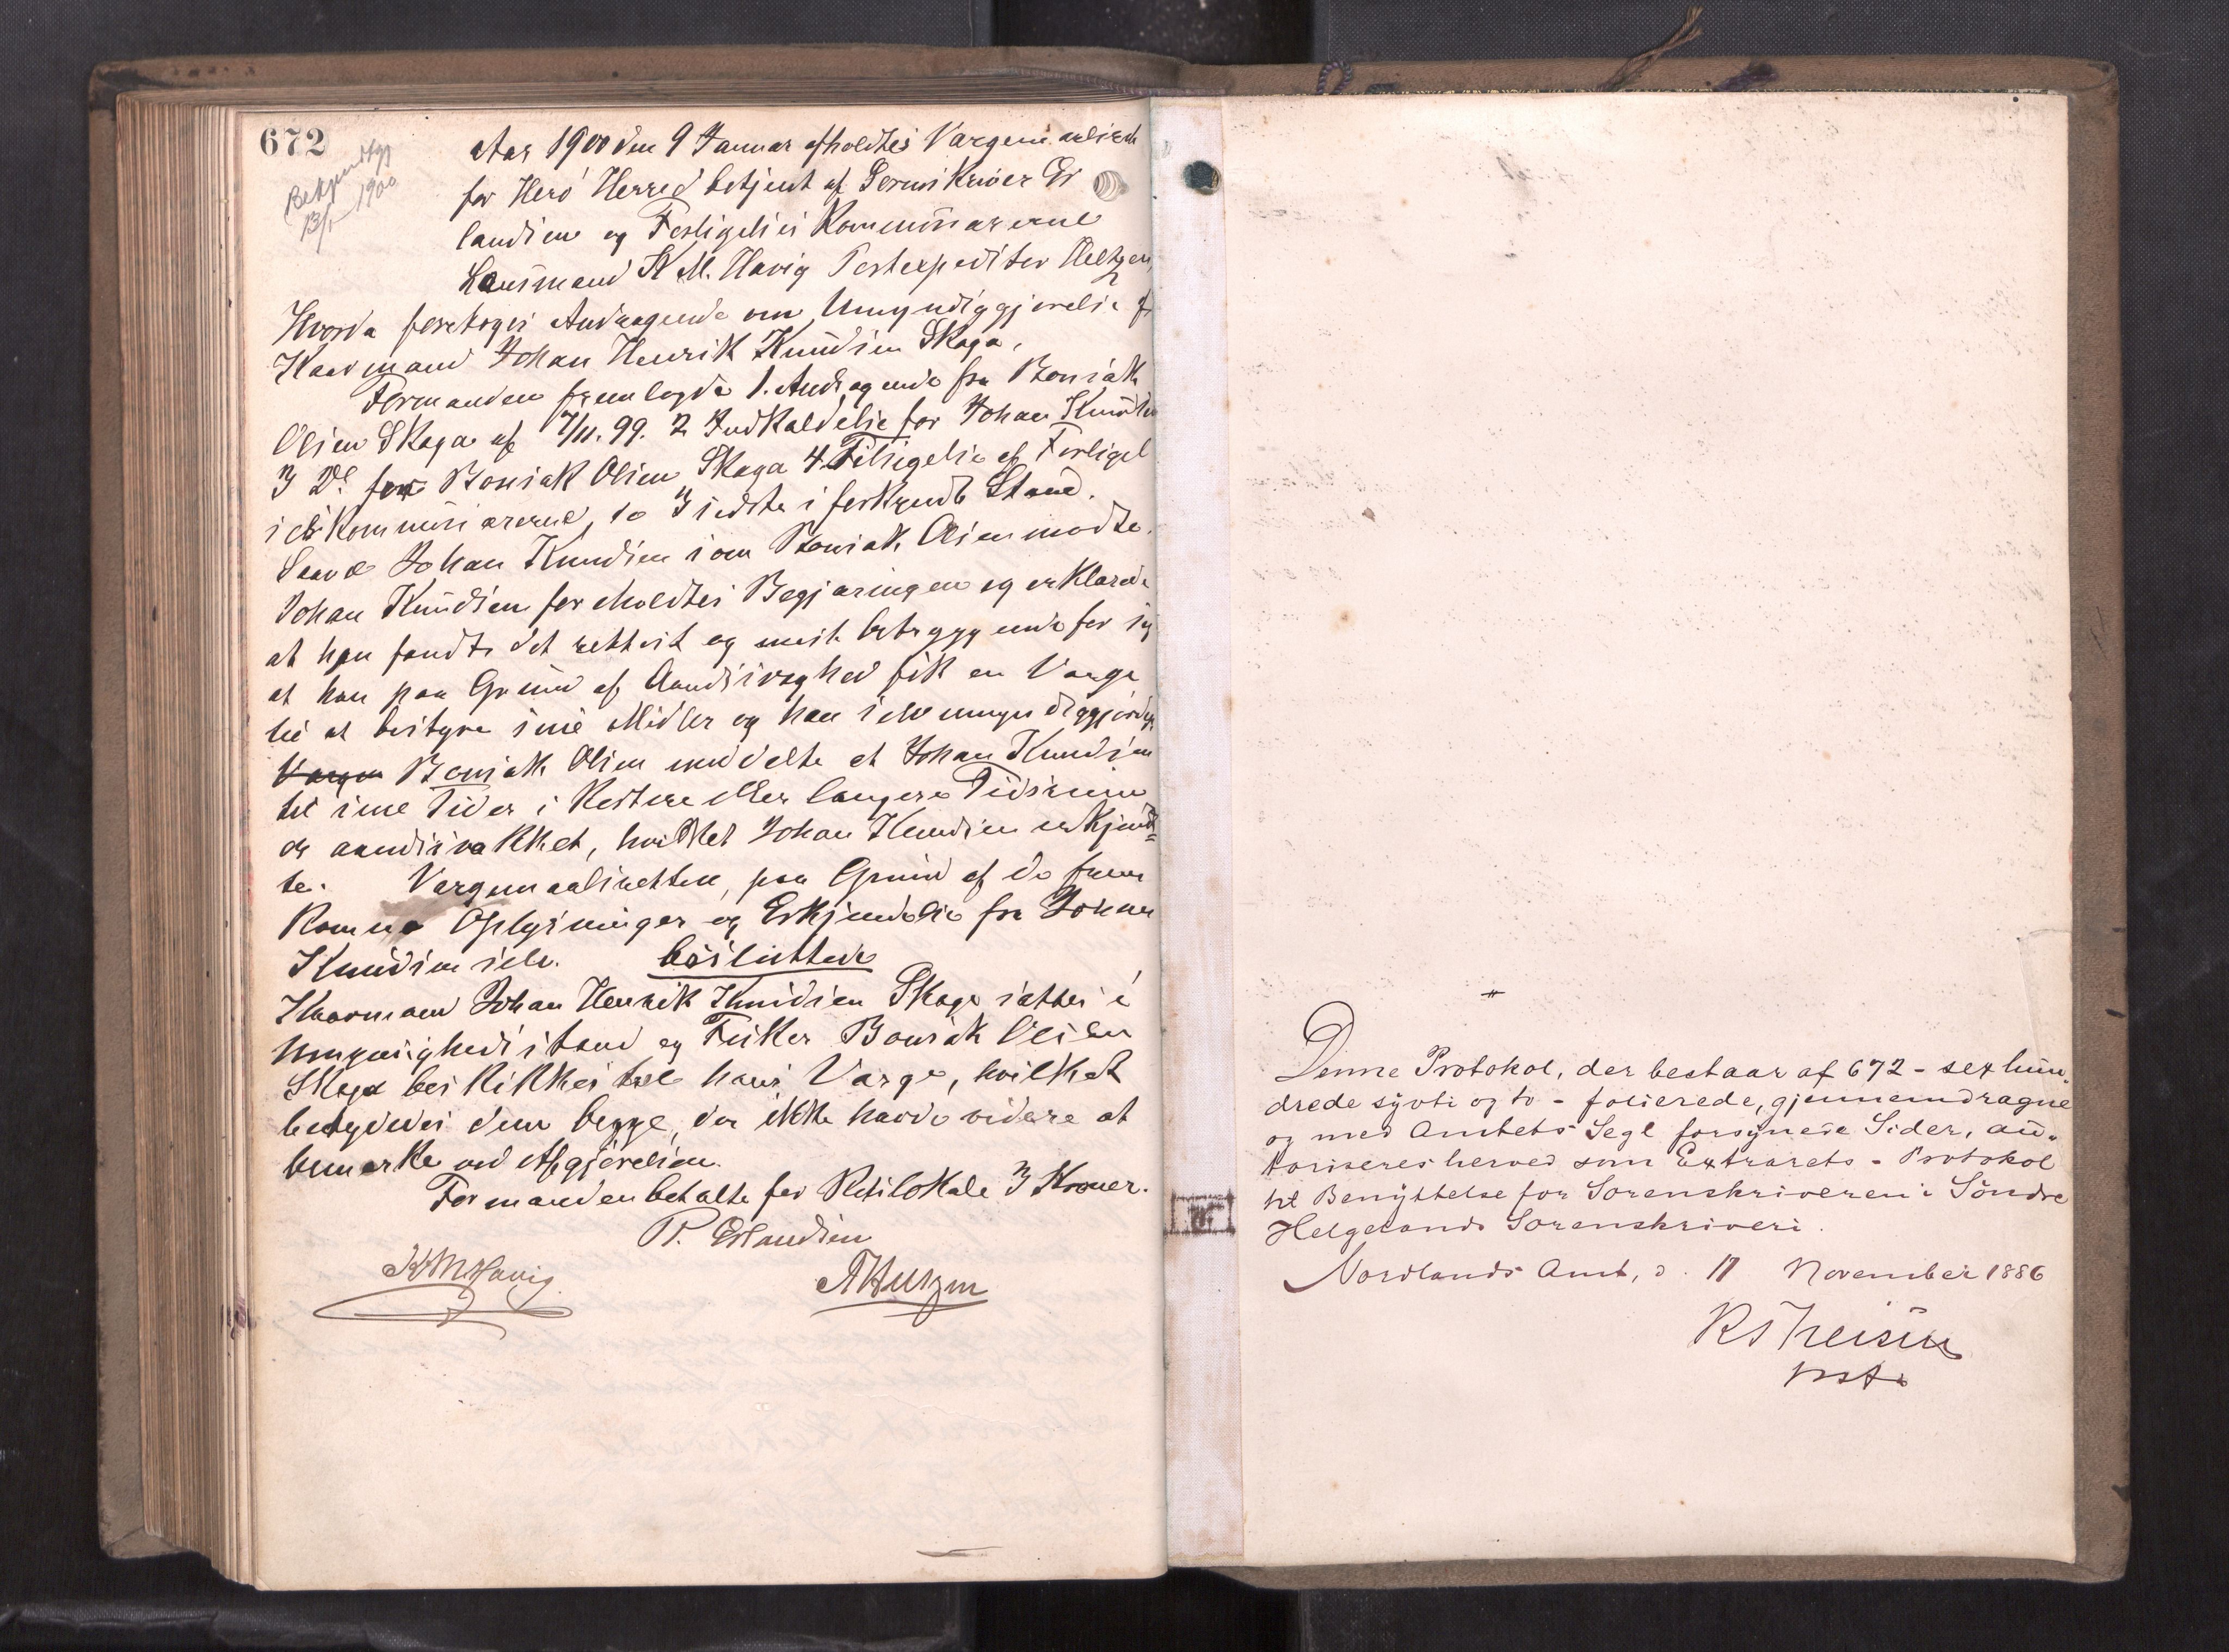 672
Bekjendtgj
13/1 1900
Aar 1900 den 9 Januar afholdtes Vergemaalsret
for Herö Herred betjent af Sorenskriver Er
landsen og Forligelses Kommissærerne
Lensmand K M. Havig Postexpeditør Heltzen,
Hvorda foretoges Andragende om Umyndiggjørelse af
Kaarmand Johan Henrik Knudsen Skaga,
Formanden fremlagde 1. Andragende fra Bonsak
Olsen Skaga af 7/11. 99. 2 Indkaldelse for Johan Knudsen
3 Do for Bonsak Olsen Skaga 4. Tilsigelse af Forligel
seskommissærerne, to 3 sidste i forkyndt Stand.
Saavel Johan Knudsen som Bonsak Olsen mødte.
Johan Knudsen foreholdtes Begjæringen og erklærede
at han fandt det rettest og mest betryggende for sig
at han paa Grund af Aandssvaghed fik en Værge
til at bestyre sine Midler og han selv umyndiggjordes.
Værgen Bonsak Olsen meddelte at Johan Knudsen
til sine Tider i kortere eller længere Tidsrum
er aandssvakket, hvilket Johan Knudsen erkjend=
te. Vergemaalsretten, paa Grund af de frem
komne Oplysninger og Erkjendelse fra Johan
Knudsen selv. besluttede
Kaarmand Johan Henrik Knudsen Skaga sættes i
Umyndighedsstand og Fisker Bonsak Olsen
Skaga beskikkes til hans Værge, hvilket
betydedes dem begge, der ikke havde videre at
bemærke ved Afgjørelsen.
Formanden betalte for Retslokale 3 Kroner.
P. Erlandsen
KMHavig
AHeltzen
Denne Protokol, der bestaar af 672 - sex hun-
drede sÿvti og to - folierede, gjennemdragne
og med Amtets Segl forsÿnede Sider, au-
toriseres herved som Extrarets - Protokol
til Benÿttelse for Sorenskriveren i Söndre
Helgelands Sorenskriveri.
Nordlands Amt, d. 17 November 1886